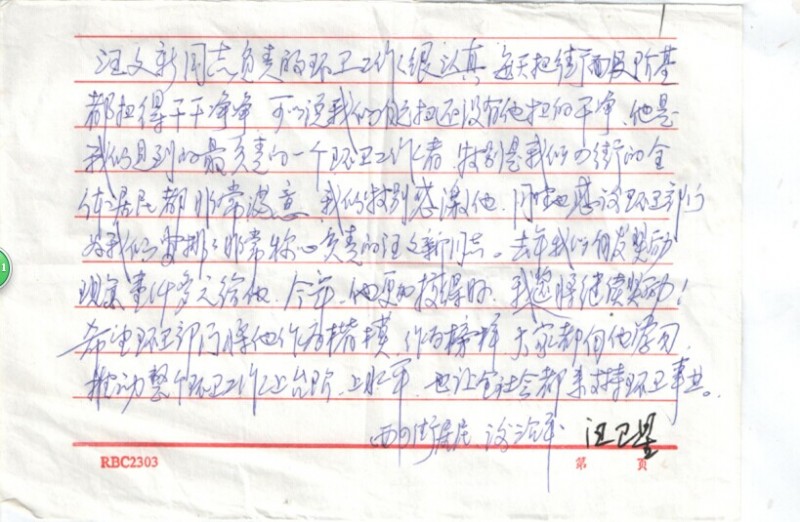 汪文新同志负责的环卫工作很认真 每天把街面及阶基
都扫得干干净净 可以说我们自己扫还没有他扫的干净、他是
我们见到的最负责的一个环卫工作者 特别是我们西街的全
体居民都非常满意 我们特别感激他、同时也感谢环卫部门
为我们安排了非常称心负责的汪文新同志。去年我们自发奖励
现金壹仟多元给他、今年、他更加扫得好、我还将继续奖励！
希望环卫部门将他作为楷模 作为榜样 大家都向他学习、
推动整个环卫工作上台阶、上水平、也让全社会都来支持环卫事业。
西街居民 汪卫星
RBC2303
第 页
1